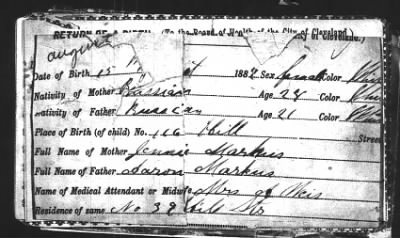 RETURN OF A BIRTH. (To the Board of Health of the City of Cleveland.)
August
Date of Birth 15 188 Sex Female Color
Nativity of Mother Russian Age 28 Color
Nativity of Father Russian Age Color
Place of Birth (of child) No. 116 Hill Street
Full Name of Mother Jennie Markus
Full Name of Father Aaron Markus
Name of Medical Attendant or Midwife Mrs
Residence of same No 39 Hill